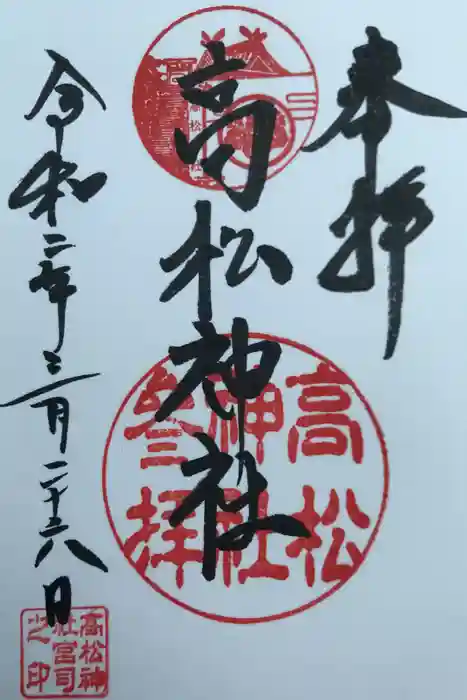 奉拝
高松神社
令和二年三月二十六日
高松
神社
参拝
高松神
社宮司
之印